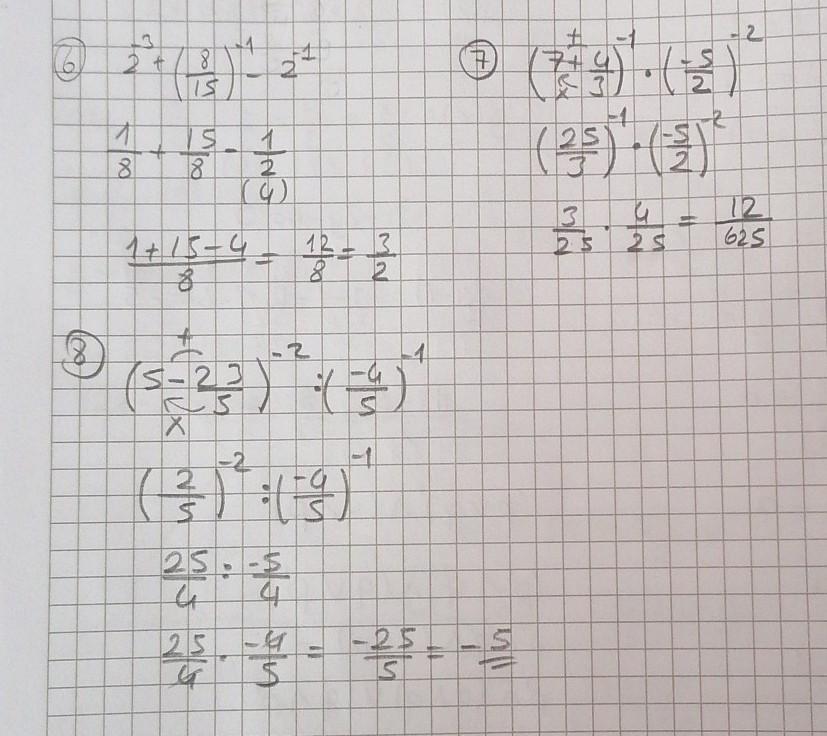 6 2⁻³ + (8/15)⁻¹ - 2⁻¹
1/8 + 15/8 - 1/2
(4)
(1+15-4)/8 = 12/8 = 3/2
7 (7+4/3)⁻¹ · (-5/2)⁻²
+
x
(25/3)⁻¹ · (-5/2)⁻²
3/25 · 4/25 = 12/625
8 (5-23/5)⁻² : (-4/5)⁻¹
+
x
(2/5)⁻² : (-4/5)⁻¹
25/4 : -5/4
25/4 · -4/5 = -25/5 = -5